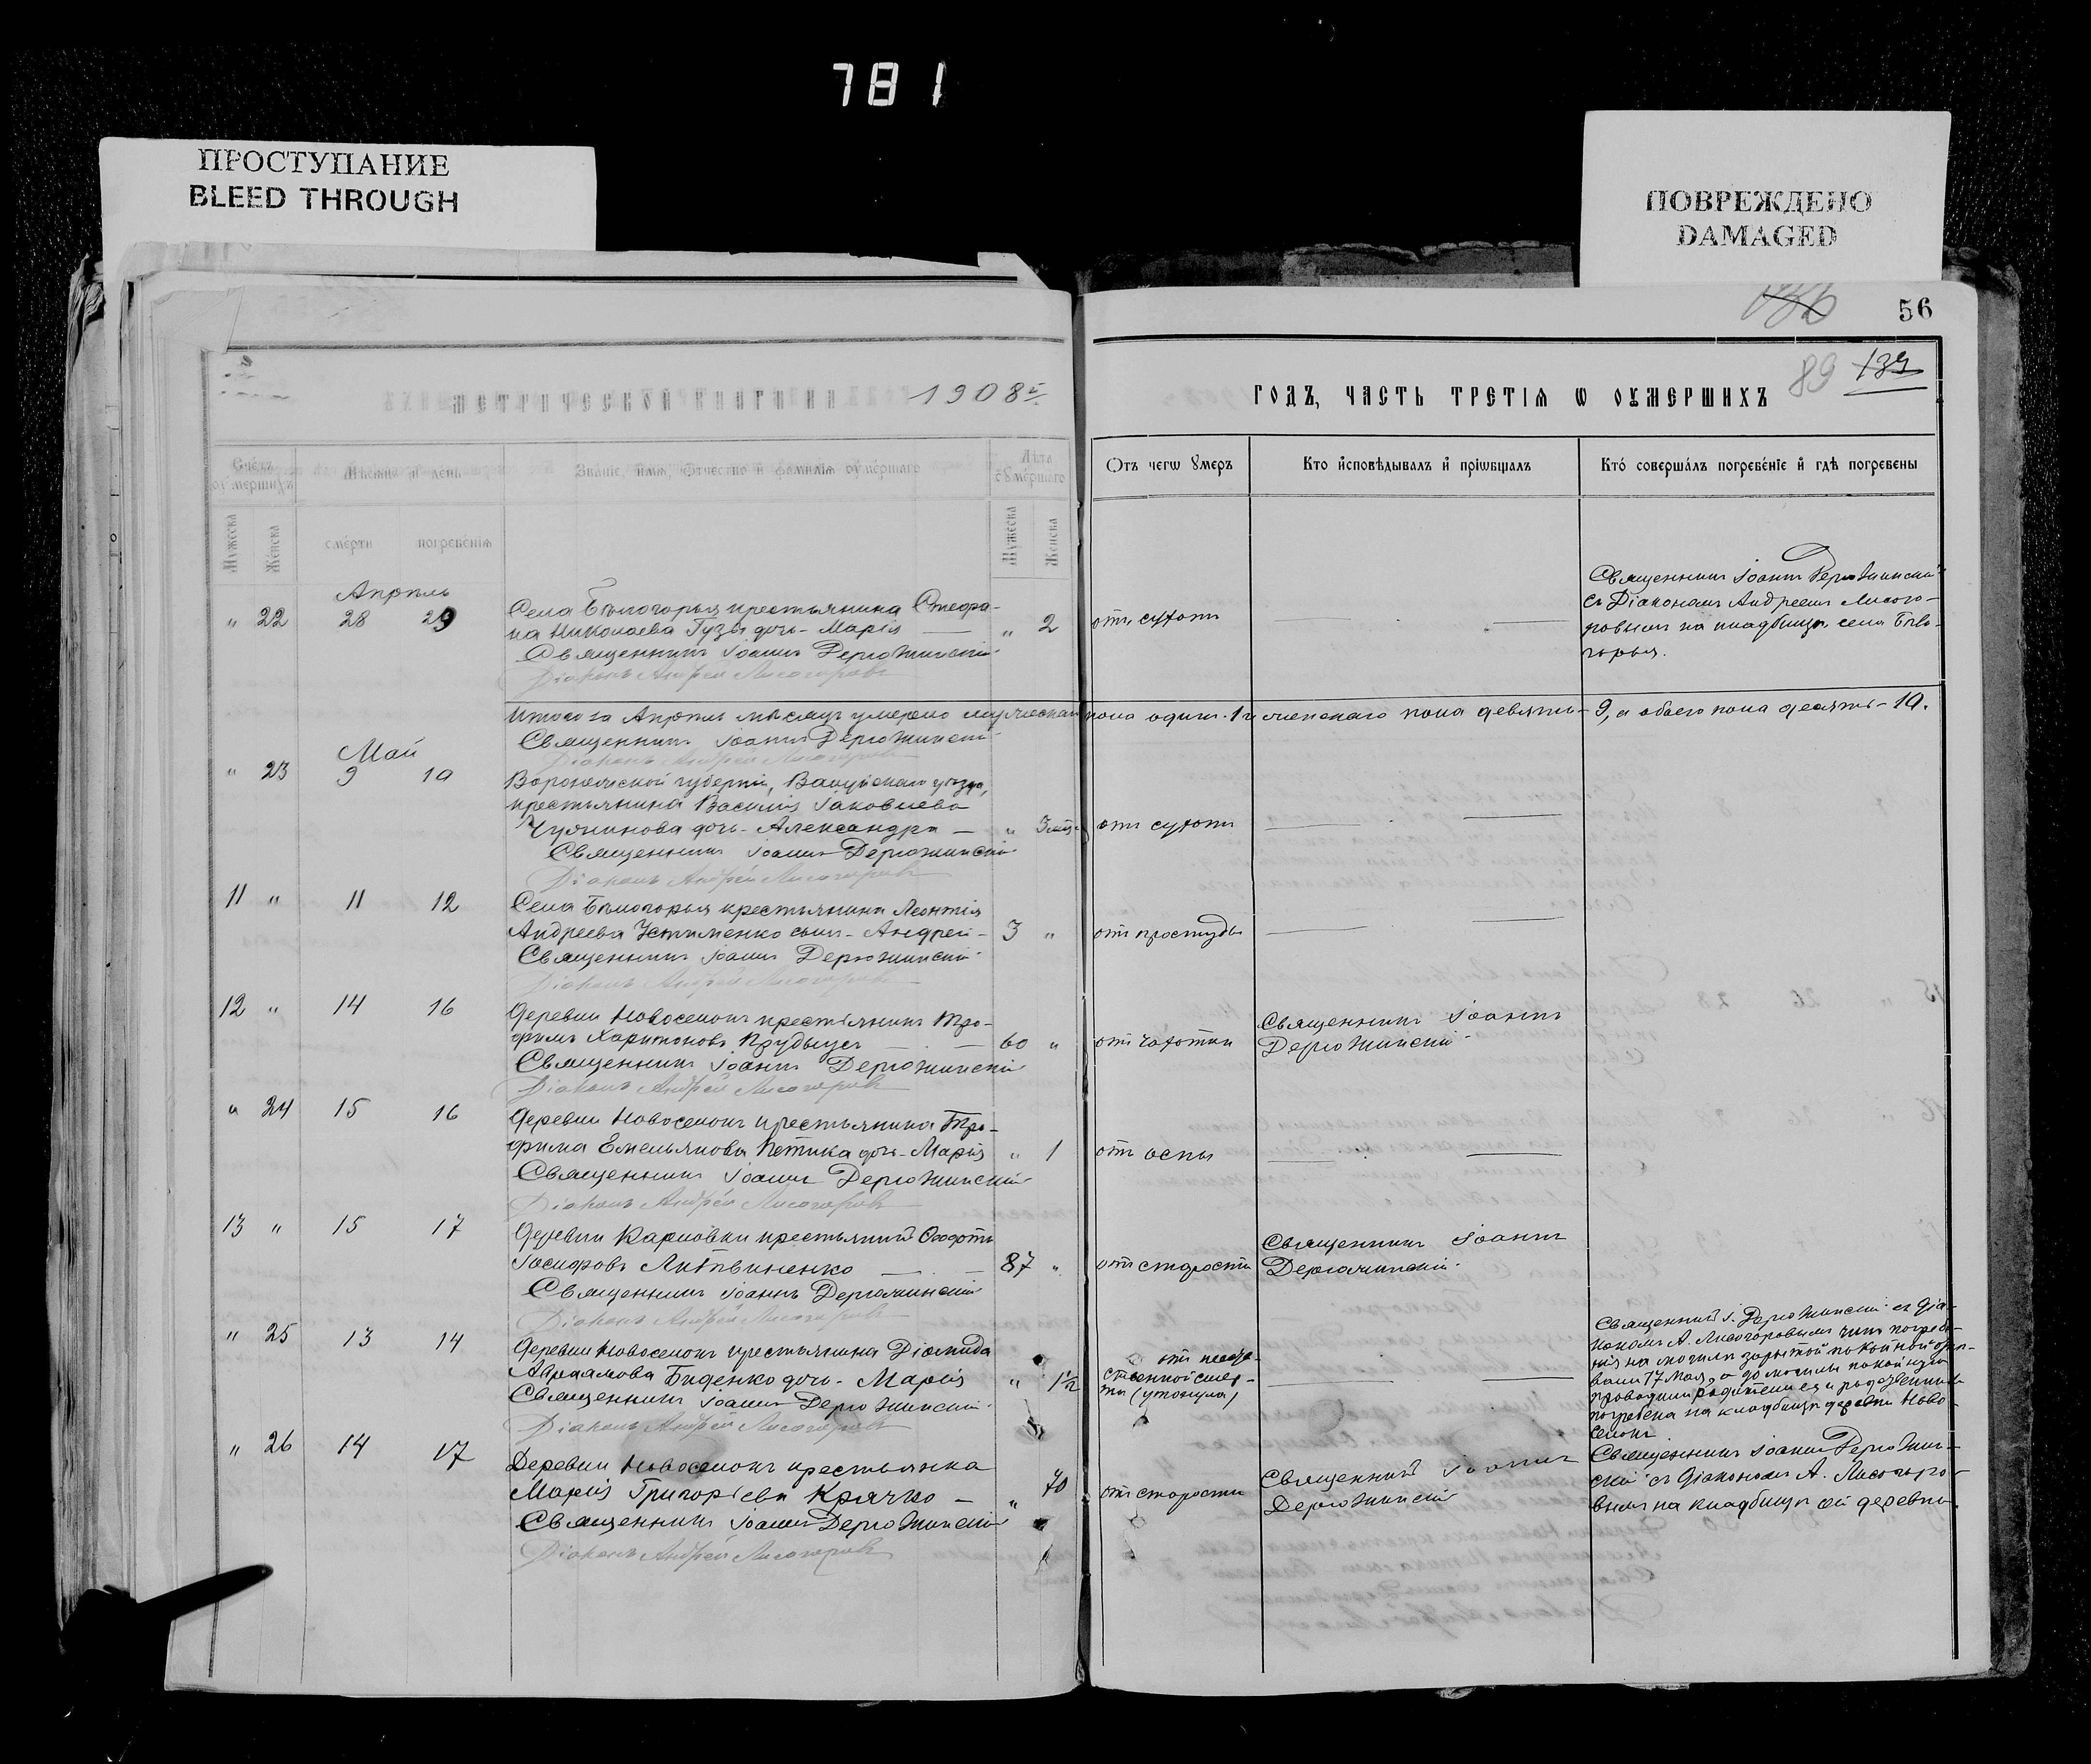 781
ПРОСТУПАНИЕ
BLEED THROUGH
ПОВРЕЖДЕНО
DAMAGED
56
89 139
метрической книги на 1908 г.
годъ, часть третія ѡ оумершихъ
Счетъ оумершихъ
Мѣсяцъ и день
Званіе, имя, отчество и фамилія оумершаго
Лѣта оумершаго
Отъ чегѡ оумеръ
Кто исповѣдывалъ и пріѡбщалъ
Кто совершалъ погребеніе и гдѣ погребены
Мужеска
Женска
смерти
погребенія
Мужеска
Женска
Апрѣль
" 22 28 29
Села Бѣлогорья крестьянина Стефа-
на Николаева Гузя дочь - Марія — " 2
Священникъ Іоаннъ Дерюжинскій
Діаконъ Андрей Лисогоровъ
отъ сухотъ
Священникъ Іоаннъ Дерюжинскій
съ Діакономъ Андреемъ Лисого-
ровымъ на кладбищѣ села Бѣло-
горья.
Итого за Апрѣль мѣсяцъ умерло мужескаго пола одинъ - 1 и женскаго пола девять - 9, а обоего пола десять - 10.
Священникъ Іоаннъ Дерюжинскій
Діаконъ Андрей Лисогоровъ
Май
" 23 9 10
Воронежской губерніи, Валуйскаго уѣзда,
крестьянина Василія Іаковлева
дочь - Александра — " 3 мѣс.
Священникъ Іоаннъ Дерюжинскій
Діаконъ Андрей Лисогоровъ
отъ сухотъ
11 " 11 12
Села Бѣлогорья крестьянина Леонтія
Андреева Устименко сынъ - Андрей - 3 "
Священникъ Іоаннъ Дерюжинскій
Діаконъ Андрей Лисогоровъ
отъ простуды
12 " 14 16
Деревни Новоселокъ крестьянинъ Тро-
фимъ Харитоновъ — 60 "
Священникъ Іоаннъ Дерюжинскій
Діаконъ Андрей Лисогоровъ
отъ чахотки
Священникъ Іоаннъ
Дерюжинскій
" 24 15 16
Деревни Новоселокъ крестьянина Тро-
фима Емельянова Петика дочь - Марія " 1
Священникъ Іоаннъ Дерюжинскій
Діаконъ Андрей Лисогоровъ
отъ оспы
13 " 15 17
Деревни Карповки крестьянинъ Ѳеодотъ
Іосифовъ Литвиненко — 87 "
Священникъ Іоаннъ Дерюжинскій
Діаконъ Андрей Лисогоровъ
отъ старости
Священникъ Іоаннъ
Дерюжинскій
" 25 13 14
Деревни Новоселокъ крестьянина Діомида
Авраамова Биденко дочь - Марія " 1½
Священникъ Іоаннъ Дерюжинскій
Діаконъ Андрей Лисогоровъ
ственной смер-
ти (утонула)
Священникъ І. Дерюжинскій съ Діа-
кономъ А. Лисогоровымъ чинъ погребе-
нія на могилѣ зарытой покойной
17 Мая, а до могилы покойную
проводили родители ея и
погребена на кладбищѣ деревни Ново-
селокъ.
" 26 14 17
Деревни Новоселокъ крестьянка
Марія Григорьева Крячко — " 70
Священникъ Іоаннъ Дерюжинскій
Діаконъ Андрей Лисогоровъ
отъ старости
Священникъ Іоаннъ
Дерюжинскій
Священникъ Іоаннъ Дерюжин-
скій съ Діакономъ А. Лисогоро-
вымъ на кладбищѣ сей деревни.